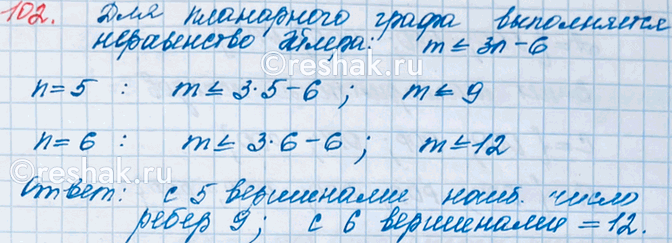 102. Для планарного графа выполняется
неравенство Эйлера: m ≤ 3n-6
n=5 : m ≤ 3·5-6 ; m ≤ 9
n=6 : m ≤ 3·6-6 ; m ≤ 12
Ответ: с 5 вершинами наиб. число
ребер 9; с 6 вершинами = 12.
©reshak.ru
©reshak.ru
©reshak.ru
©reshak.ru